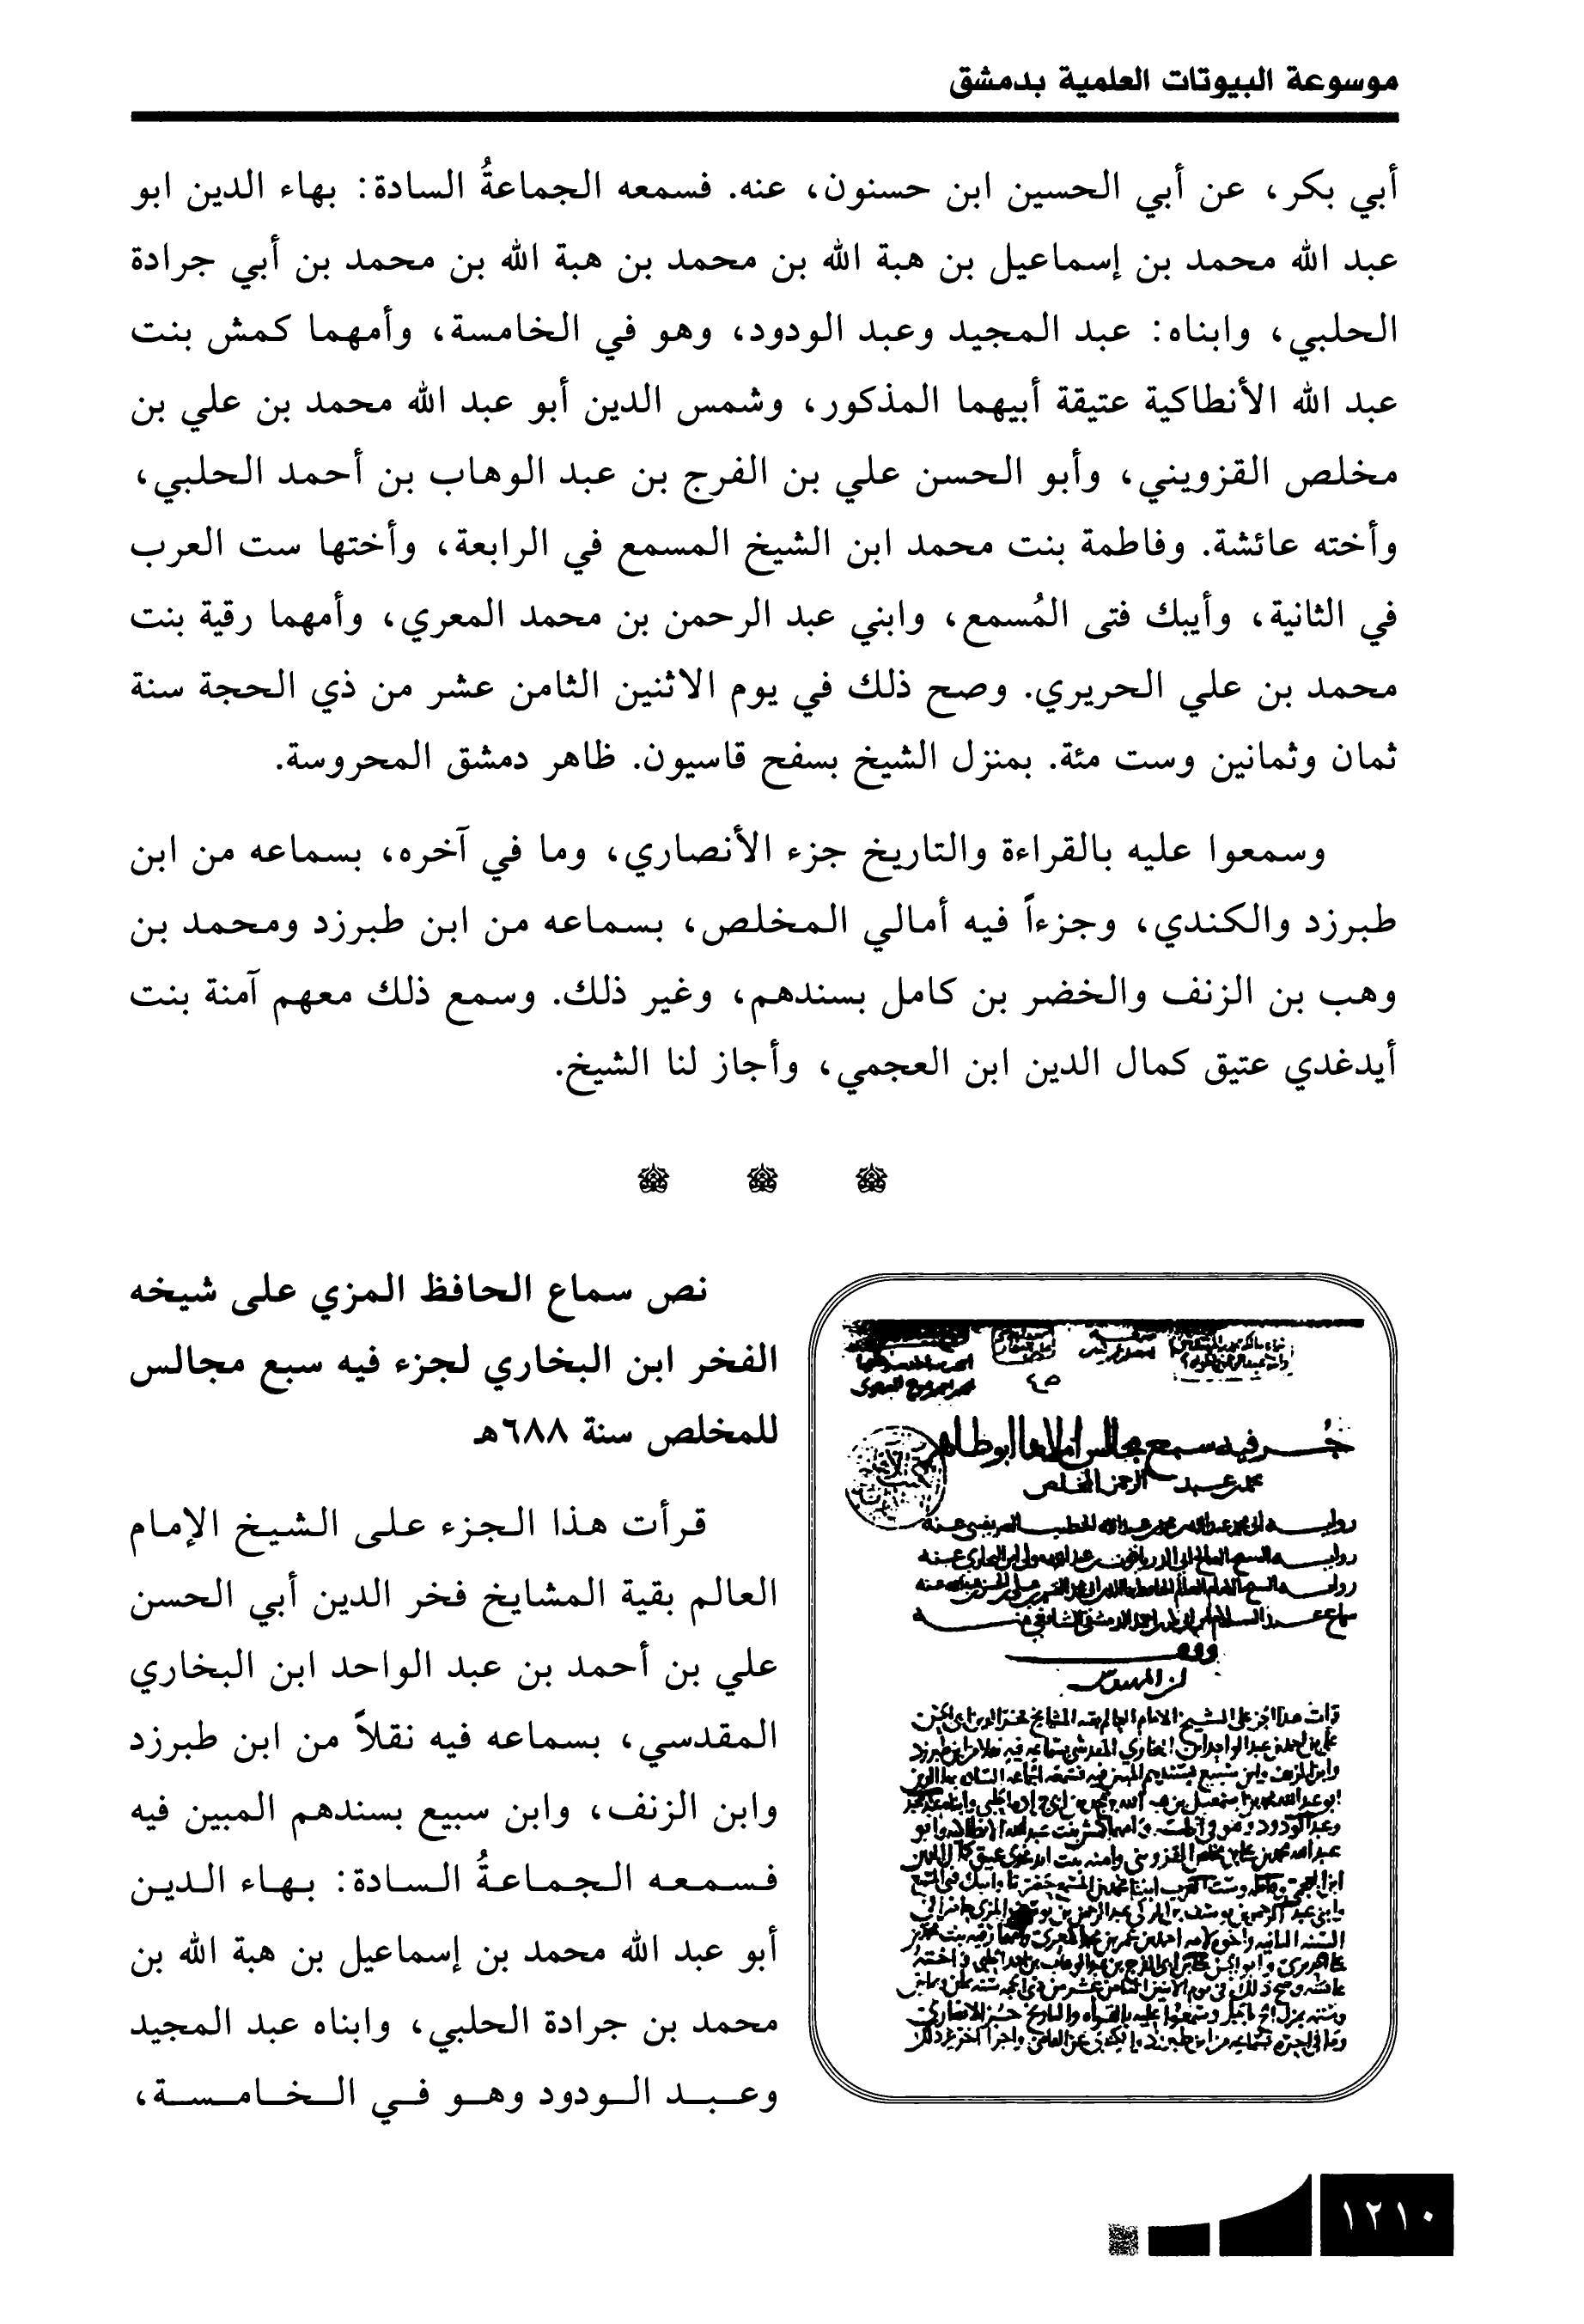 موسوعة البيوتات العلمية بدمشق
أبي بكر، عن أبي الحسين ابن حسنون، عنه. فسمعه الجماعةُ السادة: بهاء الدين ابو
عبد الله محمد بن إسماعيل بن هبة الله بن محمد بن هبة الله بن محمد بن أبي جرادة
الحلبي، وابناه: عبد المجيد وعبد الودود، وهو في الخامسة، وأمهما كمش بنت
عبد الله الأنطاكية عتيقة أبيهما المذكور، وشمس الدين أبو عبد الله محمد بن علي بن
مخلص القزويني، وأبو الحسن علي بن الفرج بن عبد الوهاب بن أحمد الحلبي،
وأخته عائشة. وفاطمة بنت محمد ابن الشيخ المسمع في الرابعة، وأختها ست العرب
في الثانية، وأيبك فتى المُسمع، وابني عبد الرحمن بن محمد المعري، وأمهما رقية بنت
محمد بن علي الحريري. وصح ذلك في يوم الاثنين الثامن عشر من ذي الحجة سنة
ثمان وثمانين وست مئة. بمنزل الشيخ بسفح قاسيون. ظاهر دمشق المحروسة.
وسمعوا عليه بالقراءة والتاريخ جزء الأنصاري، وما في آخره، بسماعه من ابن
طبرزد والكندي، وجزءاً فيه أمالي المخلص، بسماعه من ابن طبرزد ومحمد بن
وهب بن الزنف والخضر بن كامل بسندهم، وغير ذلك. وسمع ذلك معهم آمنة بنت
أيدغدي عتيق كمال الدين ابن العجمي، وأجاز لنا الشيخ.
نص سماع الحافظ المزي على شيخه
الفخر ابن البخاري لجزء فيه سبع مجالس
للمخلص سنة ٦٨٨هـ
قرأت هذا الجزء على الشيخ الإمام
العالم بقية المشايخ فخر الدين أبي الحسن
علي بن أحمد بن عبد الواحد ابن البخاري
المقدسي، بسماعه فيه نقلاً من ابن طبرزد
وابن الزنف، وابن سبيع بسندهم المبين فيه
فسمعه الجماعةُ السادة: بهاء الدين
أبو عبد الله محمد بن إسماعيل بن هبة الله بن
محمد بن جرادة الحلبي، وابناه عبد المجيد
وعبد الودود وهو في الخامسة،
١٢١٠